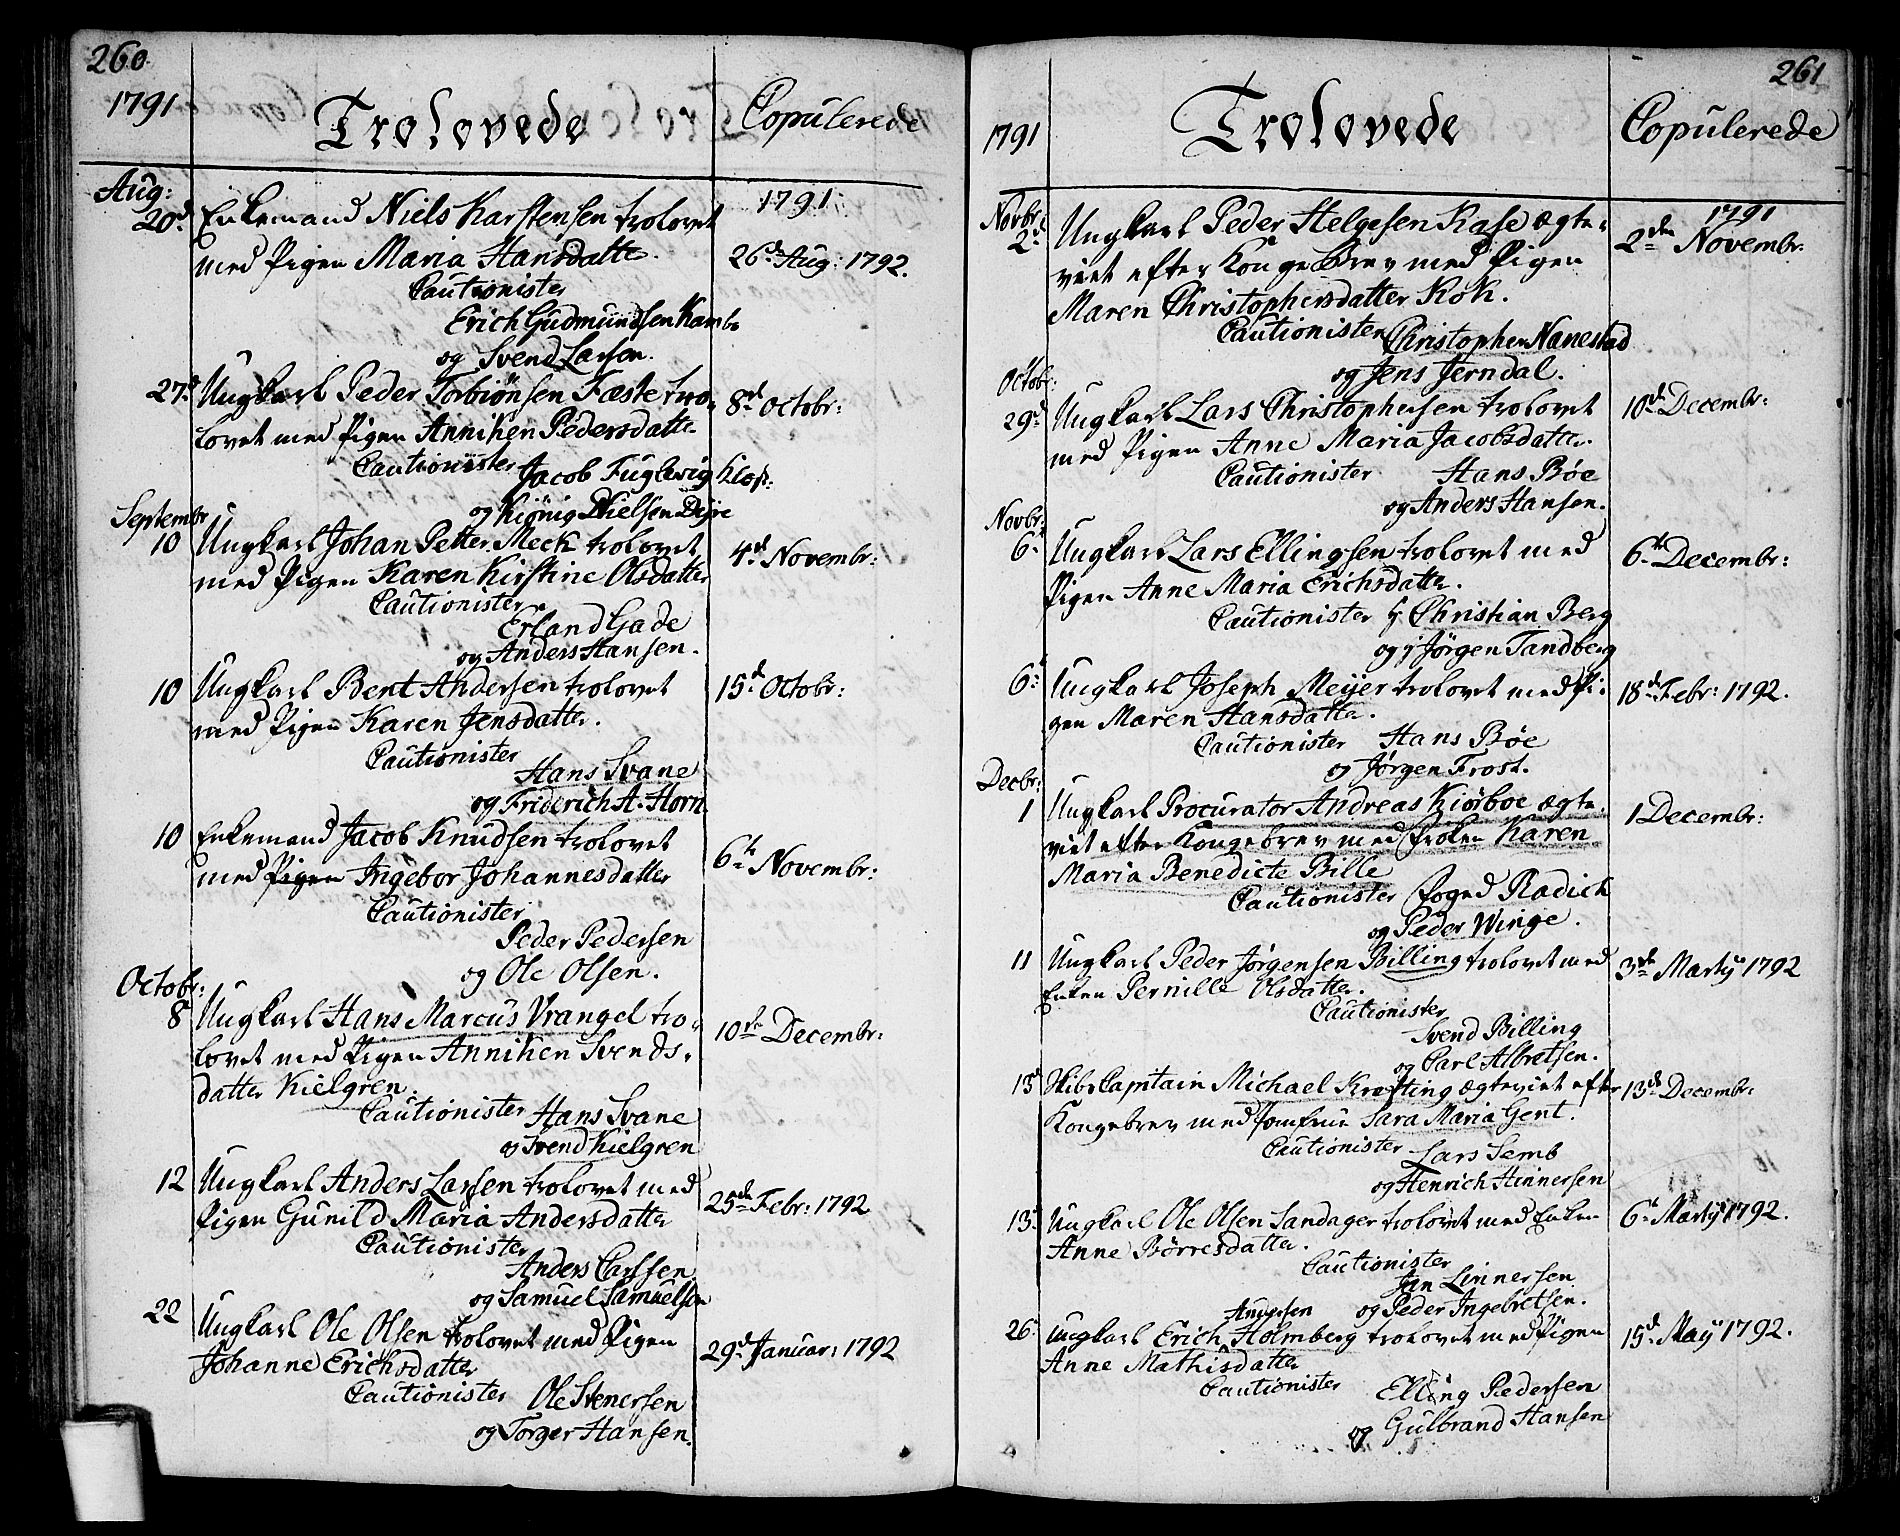 260.
1791
Trolovede
Copulerede
Aug:
20d Enkemand Niels Karstensen trolovet
med Pigen Maria Hansdatter.
Cautionister
Erich Gudmundsen Kambo
og Svend Larsen.
1791
26de Aug: 1792.
27d Ungkarl Peder Torbiönsen Fæste tro-
lovet med Pigen Annichen Pedersdatter
Cautionister Jacob Fuglevig
og Kiönig Nielsen Deyre
8d Octobr:
Septembr
10 Ungkarl Johan Petter Meck trolovet
med Pigen Karen Kirstine Olsdatter
Cautionister
Erland Gade
og Anders Hansen.
4d Novembr:
10 Ungkarl Bent Andersen trolovet
med Pigen Karen Jensdatter.
Cautionister
Hans Svane
og Friderich A. Horn
15d Octobr:
10 Enkemand Jacob Knudsen trolovet
med Pigen Ingebor Johannesdatter
Cautionister
Peder Pedersen
og Ole Olsen.
6te Novembr:
Octobr:
8 Ungkarl Hans Marcus Vrangel tro-
lovet med Pigen Anniken Svends-
datter Kielgren.
Cautionister Hans Svane
og Svend Kielgren
10de Decembr:
12 Ungkarl Anders Larsen trolovet med
Pigen Gunild Maria Andersdatter
Cautionister
Anders Carlsen
og Samuel Samuelsen
25de Febr: 1792
22 Ungkarl Ole Olsen trolovet med Pigen
Johanne Erichsdatter
Cautionister Ole Stenersen
og Torger Hansen.
29d Januar: 1792
261
1791
Trolovede
Copulerede
Novbr:
2d Ungkarl Peder Helgesen Kase ægte-
viet efter Konge Brev med Pigen
Maren Christophersdatter Kok.
Cautionister Christopher Nanestad
og Jens Jerndal.
1791
2den Novembr:
Octobr:
29d Ungkarl Lars Christophersen trolovet
med Pigen Anne Maria Jacobsdatter.
Cautionister Hans Bøe
og Anders Hansen.
10de Decembr:
Novbr:
6t Ungkarl Lars Ellingsen trolovet med
Pigen Anne Maria Erichsdatter.
Cautionister Hr Christian Berg
og Hr Jørgen Tandberg
6te Decembr:
6t Ungkarl Joseph Meyer trolovet med Pi-
gen Maren Hansdatter.
Cautionister Hans Bøe
og Jørgen Frost.
18d Febr: 1792.
Decbr:
1 Ungkarl Procurator Andreas Kiørboe ægte-
viet efter Kongebrev med frøken Karen
Maria Benedicte Bille
Cautionister foged Radich
og Peder Winge.
1 Decembr:
11 Ungkarl Peder Jørgensen Billing trolovet med
Enken Pernille Olsdatter.
Cautionister
Svend Billing
og Carl Albretsen.
3de Martij 1792
13d Skibs Capitain Michael Krefting ægteviet efter
Kongebrev med Jomfrue Sara Maria Gent.
Cautionister Lars Semb
og Henrich Hinnersen
13de Decembr:
13d Ungkarl Ole Olsen Sandager trolovet med Enken
Anne Börresdatter.
Cautionister
Jen Linnersen
og Peder Ingebretsen.
6t Martij 1792.
26 Ungkarl Erich Holmberg trolovet med Pigen
Anne Mathisdatter
Cautionister Elling Pedersen
og Gulbrand Hansen
15d Maij 1792.